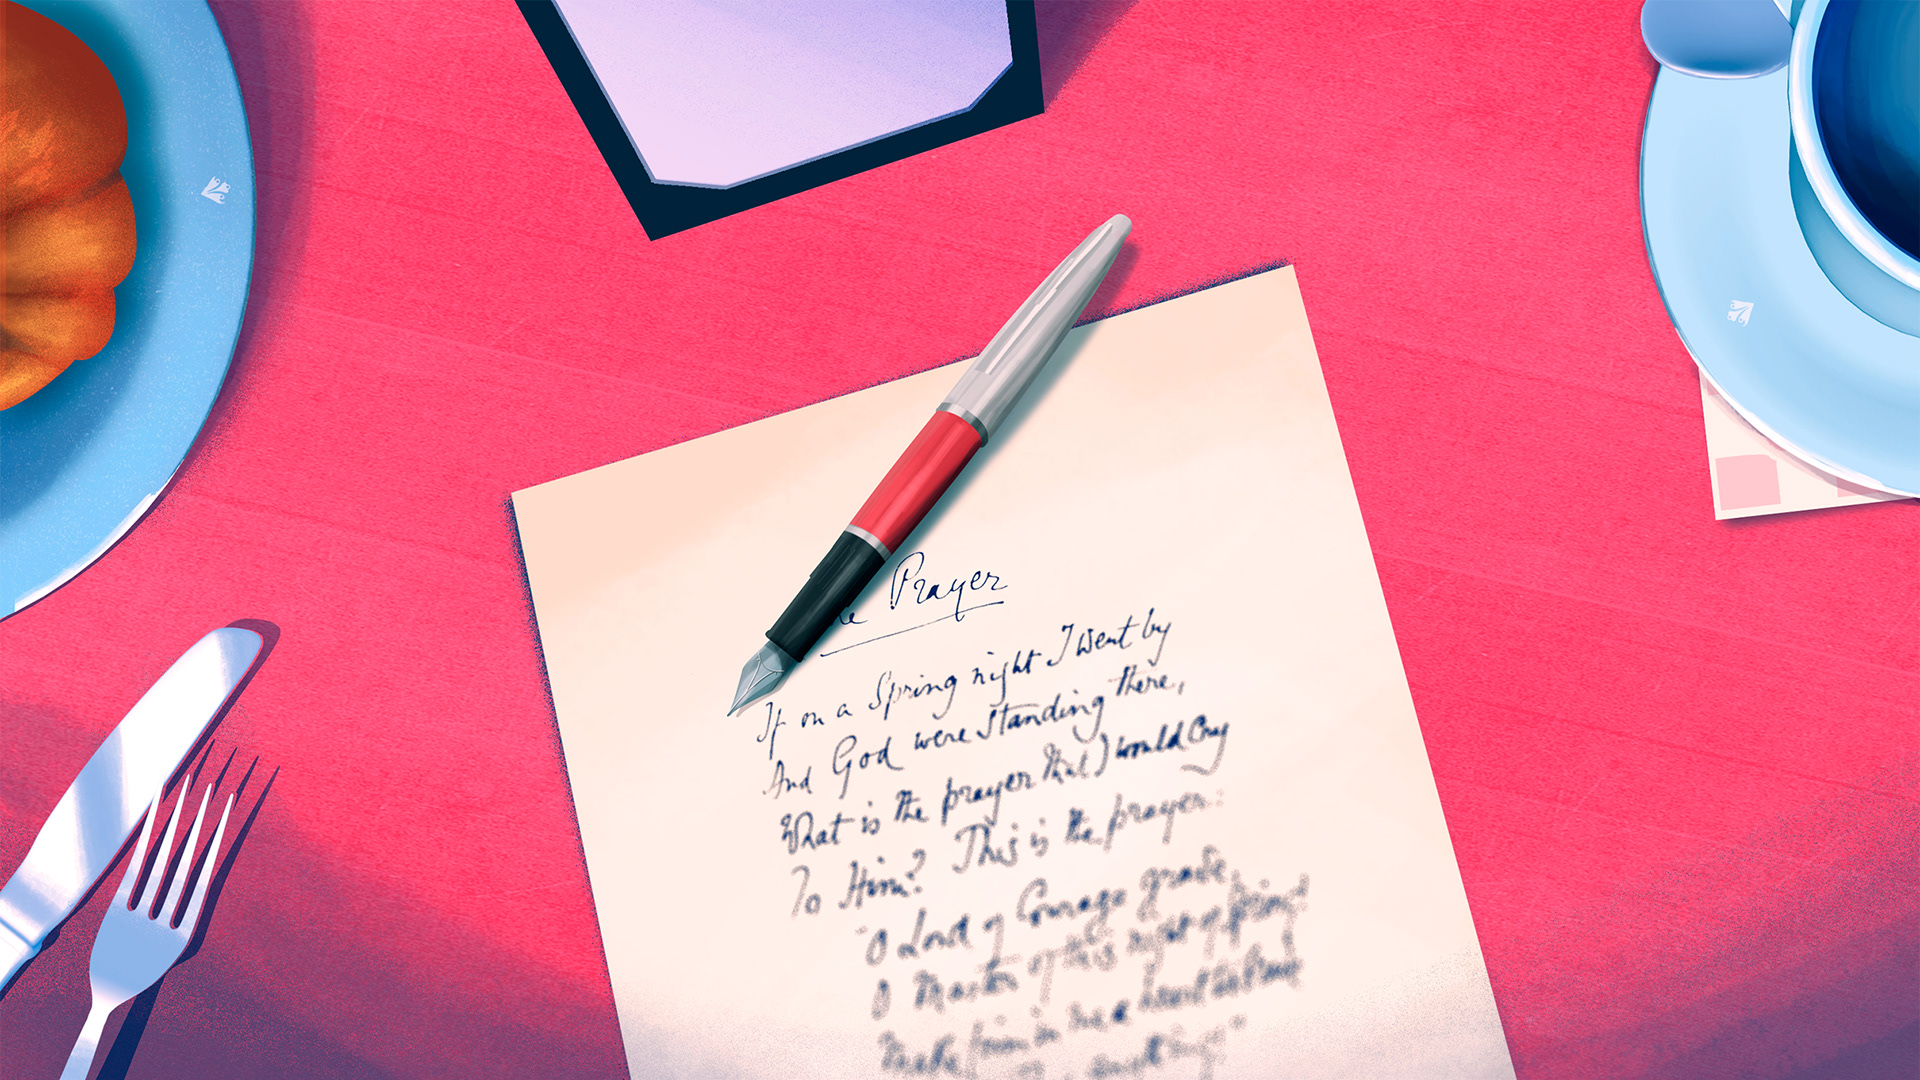 he Prayer
If on a Spring night I went by
And God were standing there,
What is the prayer that I would cry
To Him? This is the prayer:
O Lord of Courage grave,
O Master of this night of Spring!
Make firm in me a heart too brave